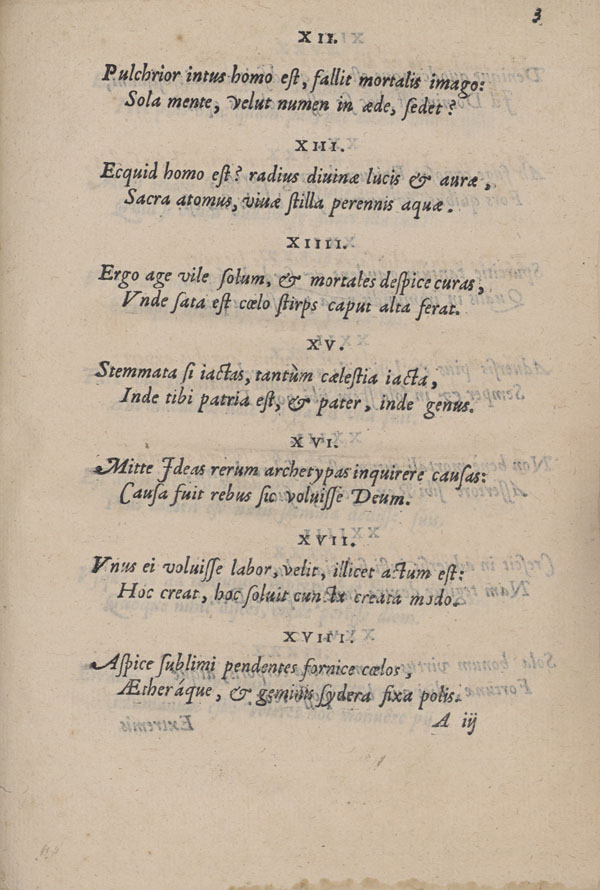 3
XII.
Pulchrior intus homo est, fallit mortalis imago:
Sola mente, velut numen in æde, sedet?
XIII.
Ecquid homo est? radius diuinæ lucis & auræ,
Sacra atomus, viuæ stilla perennis aquæ.
XIIII.
Ergo age vile solum, & mortales despice curas,
Vnde sata est cœlo stirps caput alta ferat.
XV.
Stemmata si iactas, tantùm cælestia iacta,
Inde tibi patria est, & pater, inde genus.
XVI.
Mitte Ideas rerum archetypas inquirere causas:
Causa fuit rebus sic voluisse Deum.
XVII.
Vnus ei voluisse labor, velit, illicet actum est:
Hoc creat, hoc soluit cuncta creata modo.
XVIII.
Aspice sublimi pendentes fornice cœlos,
Ætheráque, & geminis sydera fixa polis.
A iij